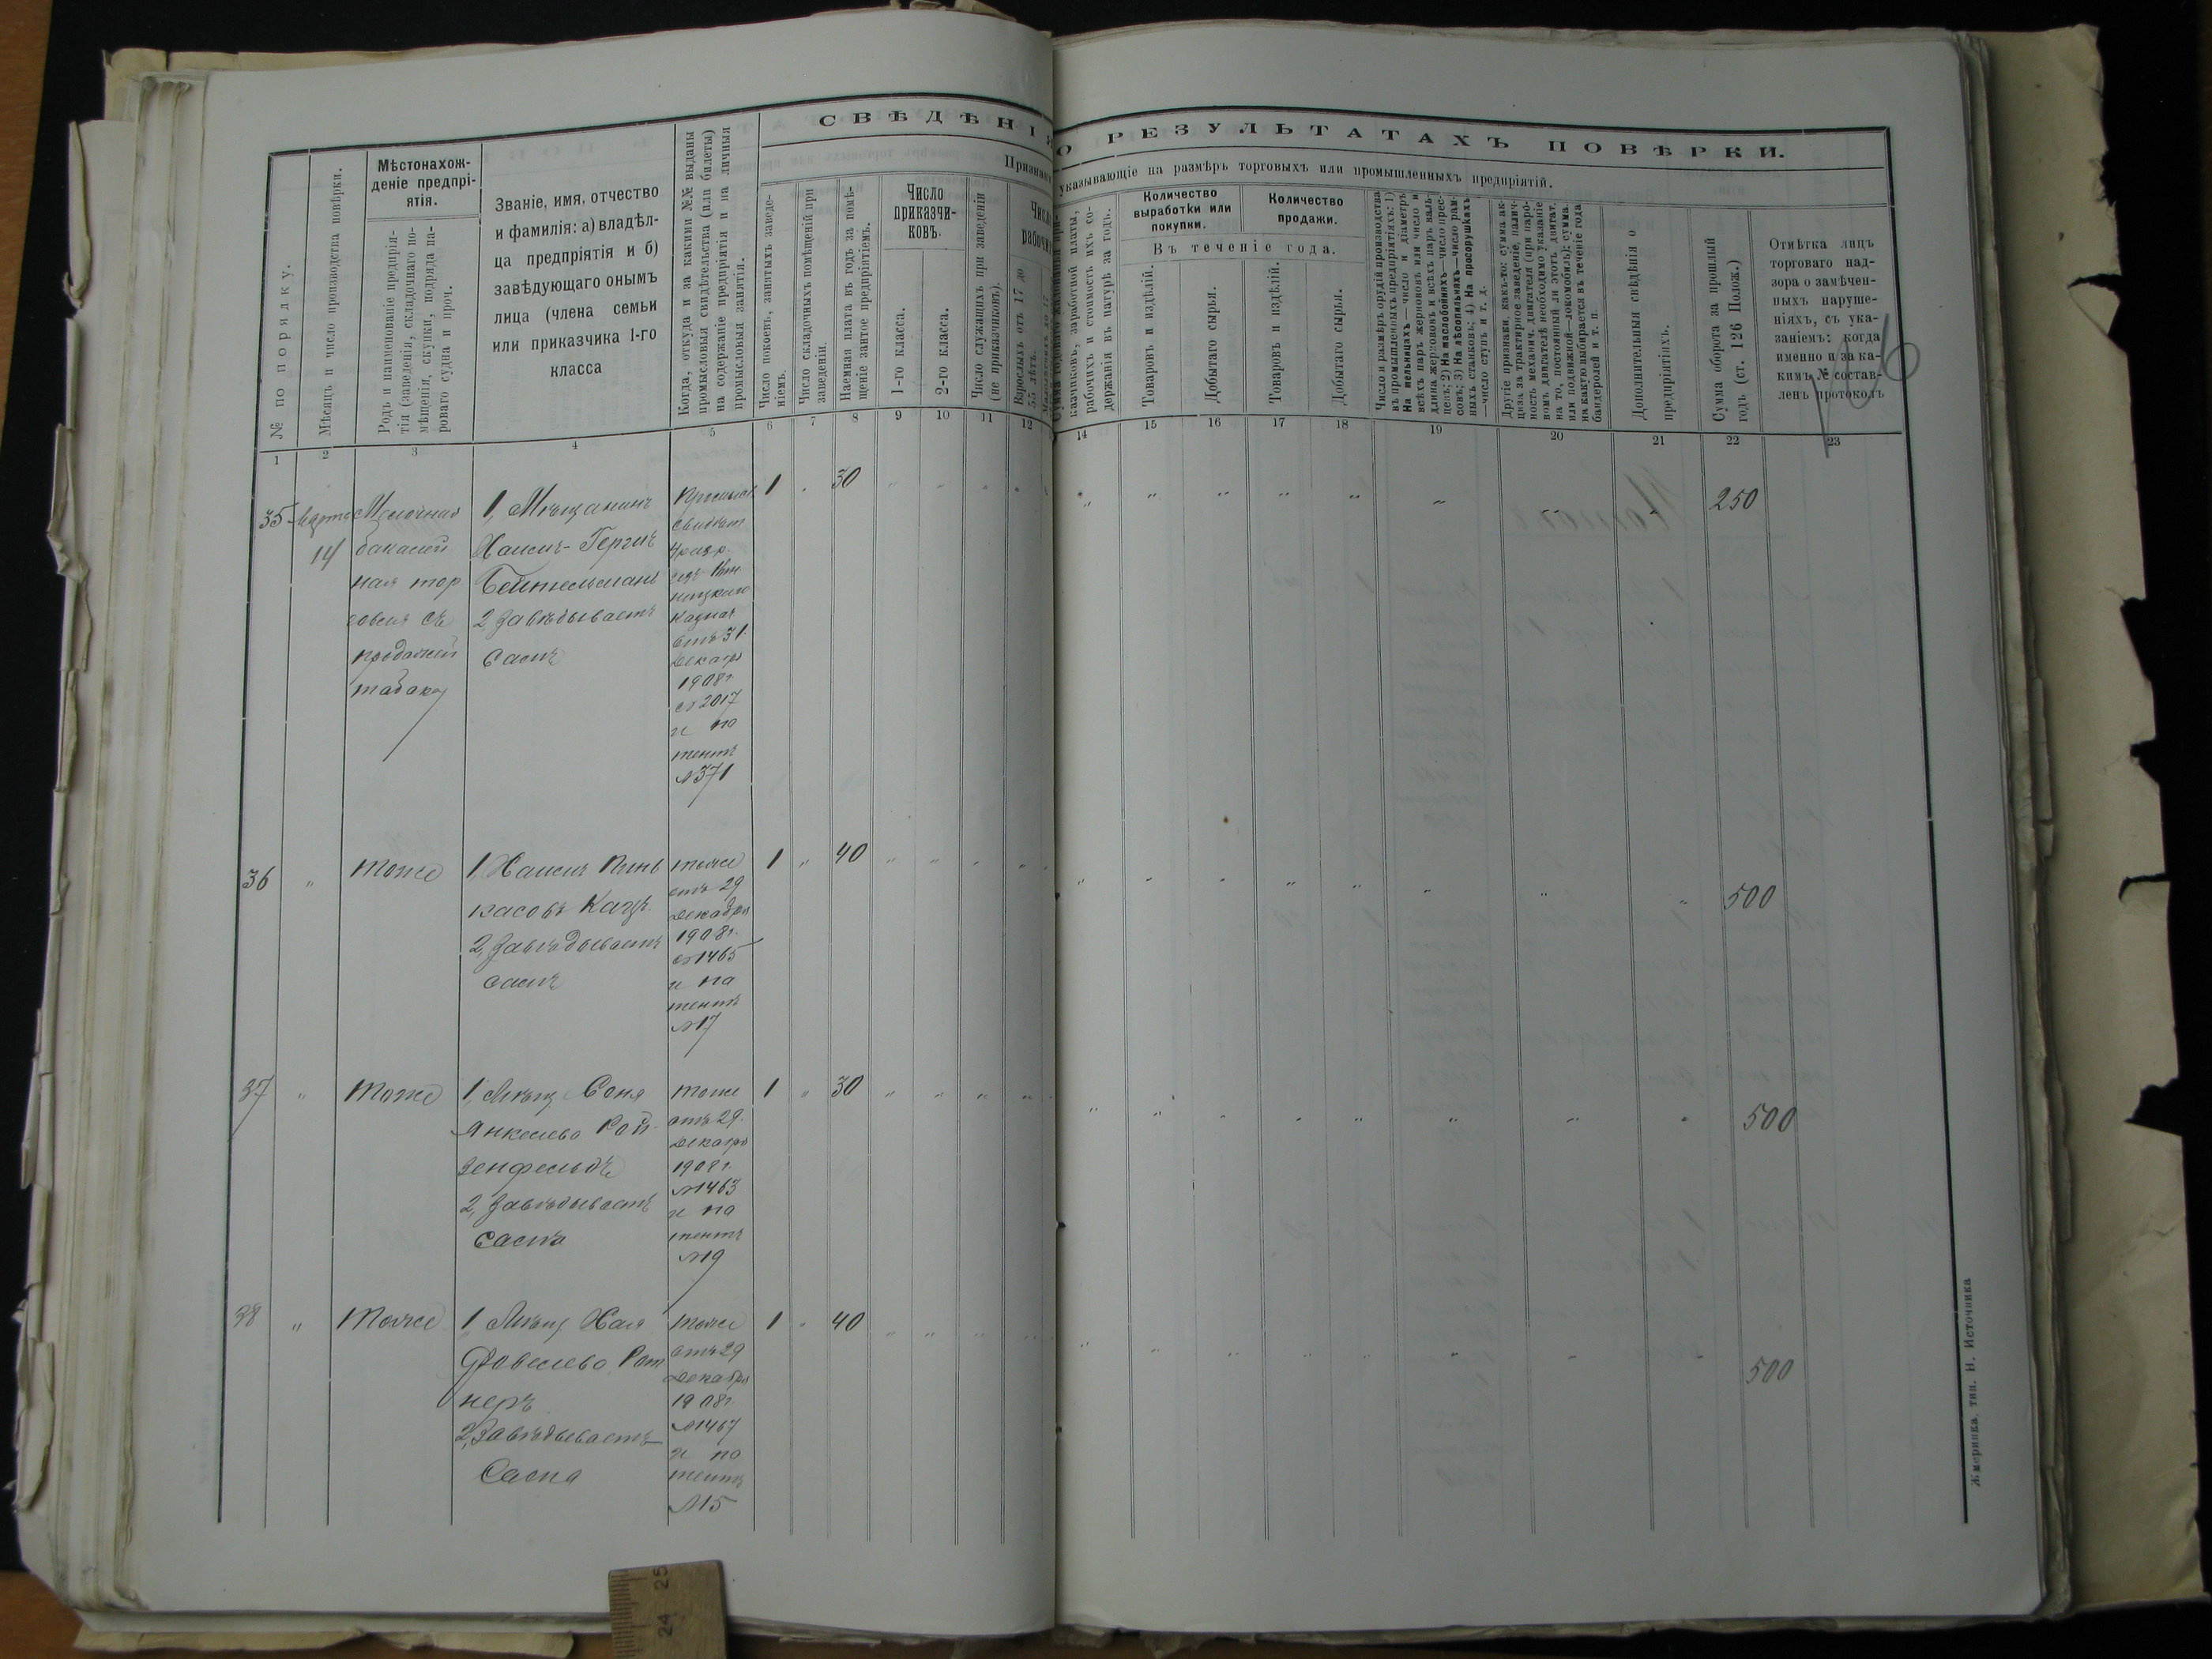 СВѢДѢНІЯ О РЕЗУЛЬТАТАХЪ ПОВѢРКИ.
указывающіе на размѣръ торговыхъ или промышленныхъ предпріятій.
№ по порядку.
Мѣсяцъ и число производства повѣрки.
Мѣстонахож-
деніе предпрі-
ятія.
Родъ и наименованіе предпрія-
тія (заведенія, складочнаго по-
мѣщенія, скупки, подряда па-
роваго судна и проч.
Званіе, имя, отчество
и фамилія: а) владѣл-
ца предпріятія и б)
завѣдующаго онымъ
лица (члена семьи
или приказчика 1-го
класса
Когда, откуда и за какими №№ выданы
промысловыя свидѣтельства (или билеты)
на содержаніе предпріятія и на личныя
промысловыя занятія.
Число покоевъ, занятыхъ заведе-
ніемъ.
Число складочныхъ помѣщеній при
заведеніи.
Наемная плата въ годъ за помѣ-
щеніе занятое предпріятіемъ.
Число
приказчи-
ковъ.
1-го класса.
2-го класса.
Число служащихъ при заведеніи
(не приказчиковъ).
Взрослыхъ отъ 17 до
55 лѣтъ.
казчиковъ, заработной платы,
рабочихъ и стоимость ихъ со-
держанія въ натурѣ за годъ.
Количество
выработки или
покупки.
Количество
продажи.
Въ теченіе года.
Товаровъ и издѣлій.
Добытаго сырья.
Товаровъ и издѣлій.
Добытаго сырья.
Число и размѣръ орудій производства
въ промышленныхъ предпріятіяхъ: 1)
На мельницахъ—число и діаметръ
всѣхъ паръ жернововъ или число и
длина жернововъ и всѣхъ паръ валь-
цевъ; 2) На маслобойняхъ—число прес-
совъ; 3) На лѣсопильняхъ—число рам-
ныхъ станковъ; 4) На просорушкахъ
—число ступъ и т. д.
Другіе признаки, какъ-то: сумма ак-
циза за трактирное заведеніе, налич-
ность механич. двигателя (при паро-
вомъ двигателѣ необходимо указаніе
на то, постоянный ли этотъ двигат.
или подвижной—локомобиль); сумма,
на какую выбирается въ теченіе года
бандеролей и т. п.
Дополнительныя свѣдѣнія о
предпріятіяхъ.
Сумма оборота за прошлый
годъ (ст. 126 Полож.)
Отмѣтка лицъ
торговаго над-
зора о замѣчен-
ныхъ наруше-
ніяхъ, съ ука-
заніемъ: когда
именно и за ка-
кимъ № состав-
ленъ протоколъ
1 2 3 4 5 6 7 8 9 10 11 12 14 15 16 17 18 19 20 21 22 23
35 Марта 14
Мелочная
бакалей
ная тор
говля съ
продажей
табаку
1, Мѣщанинъ
Хаимъ-Гершъ
Бейтельманъ
2, Завѣдываетъ
Самъ
Промысл.
свидѣт
4 разр.
изъ Вин
ницкаго
Казнач
отъ 31.
Декабря
1908 г.
№ 2017
и па
тентъ
№ 371
1 " 30
250
36 " Тоже
1, Хаимъ Пинь
касовъ Кацъ.
2, Завѣдываетъ
самъ
тоже
отъ 29
Декабря
1908 г.
№ 1465
и па
тентъ
№ 17
1 " 40
500
37 " Тоже
1, Мѣщ Соня
Янкелева Рой-
зенфельдъ
2, Завѣдываетъ
Сама
тоже
отъ 29.
Декабря
1908 г.
№ 1463
и па
тентъ
№ 19
1 " 30
500
38 " Тоже
1, Мѣщ Хая
Фавелева Рот
неръ
2, Завѣдываетъ
Сама
тоже
отъ 29
Декабря
1908 г
№ 1467
и па
тентъ
№ 15
1 " 40
500
Жмеринка, тип. Н. Источника
24 25